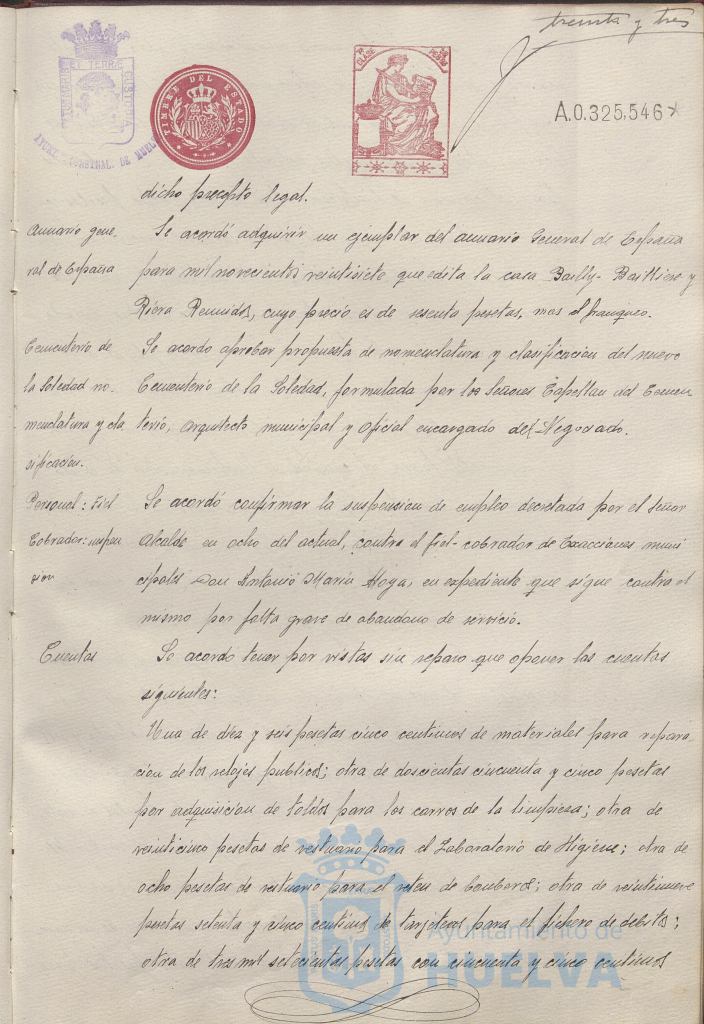 treinta y tres
ET TERRÆ CUSTODIA
AYUNT. CONSTNAL. DE HUELVA
TIMBRE DEL ESTADO
CLASE
A.0.325,546*
dicho precepto legal.
Anuario gene-
ral de España
Se acordó adquirir un ejemplar del anuario General de España
para mil novecientos veintisiete que edita la casa Bailly-Bailliere y
Riera Reunidos, cuyo precio es de sesenta pesetas, mas el franqueo.
Cementerio de
la Soledad no-
menclatura y cla
sificación.
Se acordo aprobar propuesta de nomenclatura y clasificacion del nuevo
Cementerio de la Soledad, formulada por los Señores Capellan del Cemen
terio, Arquitecto municipal y Oficial encargado del Negociado.
Personal: Fiel
Cobrador: suspen
sion
Se acordó confirmar la suspension de empleo decretada por el Señor
Alcalde en ocho del actual, contra el fiel-cobrador de Exacciones muni
cipales Don Antonio Maria Moya, en expediente que sigue contra el
mismo por falta grave de abandono de servicio.
Cuentas
Se acordo tener por vistas sin reparo que oponer las cuentas
siguientes:
Una de diez y seis pesetas cinco centimos de materiales para repara-
cion de los relojes publicos; otra de doscientas cincuenta y cinco pesetas
por adquisicion de toldos para los carros de la limpieza; otra de
veinticinco pesetas de vestuario para el Laboratorio de Higiene; otra de
ocho pesetas de vestuario para el reten de bomberos; otra de veintinueve
pesetas setenta y cinco centimos de tarjetas para el fichero de debitos;
otra de tres mil setecientas pesetas con cincuenta y cinco centimos
Ayuntamiento de
HUELVA